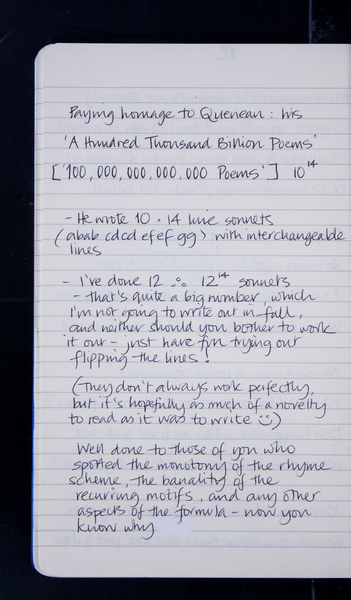 Paying homage to Quenean : his
'A Hundred Thousand Billion Poems'
['100,000,000,000,000 Poems'] 10¹⁴
- He wrote 10 × 14 line sonnets
(abab cdcd efef gg) with interchangeable
lines
- I've done 12 ∴ 12¹⁴ sonnets
- that's quite a big number, which
I'm not going to write out in full,
and neither should you bother to work
it out - just have fun trying out
flipping the lines!
(They don't always work perfectly,
but it's hopefully as much of a novelty
to read as it was to write ☺)
Well done to those of you who
spotted the monotony of the rhyme
scheme, the banality of the
recurring motifs, and any other
aspects of the formula - now you
know why.